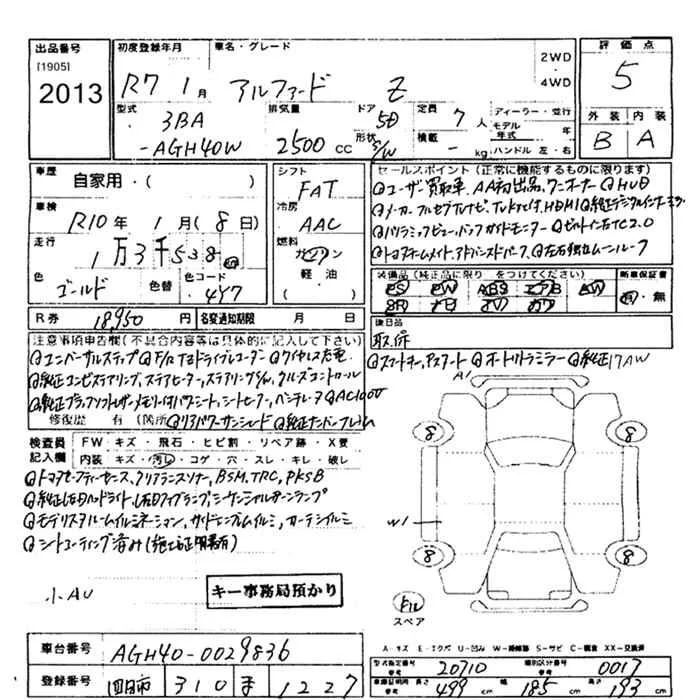 出品番号
[1905]
2013
初度登録年月
R7 1月
車名・グレード
アルファード Z
2WD
4WD
評価点
5
外装 内装
B A
型式
3BA
-AGH40W
排気量
2500 CC
ドア
5D
形状
S/W
定員
7人
積載
- kg
ディーラー・並行
モデル年式 年
ハンドル 左・右
車歴
自家用・( )
車検
R10年 1月(8日)
走行
1万3千538
色
ゴールド
色替
色コード
4Y7
シフト
FAT
冷房
AAC
燃料
ガソリン
軽油
( )
セールスポイント(正常に機能するものに限ります)
◎ユーザー買取車、AA初出品、ワンオーナー◎HUD
◎メーカーフルセグTVナビ、TVkit付、HDMI◎純正デジタルインナーミラー
◎パノラミックビュー、バックガイドモニター◎ビルトインETC2.0
◎トヨタチームメイト、アドバンストパーク、◎左右独立ムーンルーフ
装備品(純正品に限り ○をつけてください)
PS PW ABS エアB AW
SR ナビ TV カワ
新車保証書
有・無
R券
18,950円
名変通知期限 月 日
後日品
取、保
注意事項申告欄(不具合内容等は具体的に記入して下さい)
◎ユニバーサルステップ◎F/RTZドライブレコーダー◎ワイヤレス充電
◎純正コンビステアリング、ステアヒーター、ステアリングS/W、クルーズコントロール
◎純正ブラックソフトレザーメモリー付パワーシート、シートヒーター、ベンチレーター◎AC100V
修復歴 有(箇所
◎リアパワーサンシェード◎純正ナンバーフレーム
◎スマートキー、Pスタート◎オートリトラミラー◎純正17AW
検査員記入欄
FW キズ・飛石・ヒビ割・リペア跡・X要
内装 キズ・汚れ・コゲ・穴・スレ・キレ・破レ
◎トヨタセーフティーセンス、クリアランスソナー、BSM、TRC、PKSB
◎純正LEDヘッドライト、LEDフォグランプ、シーケンシャルターンランプ
◎モデリスタルームイルミネーション、サイドエンブレムイルミ、カーテシイルミ
◎シートコーティング済み(施工証明書有)
小AU
キー事務局預かり
A1
8
8
W1
8
8
トランク
スペア
A-キズ E-エクボ U-凹み W-補修跡 S-サビ C-腐食 XX-交換済
車台番号
AGH40-0029836
登録番号
四日市 310 ま 1227
型式指定番号
参考
20710
類別区分番号
参考
0017
車庫証明用
参考
長さ
499 cm
幅
185 cm
高さ
193 cm